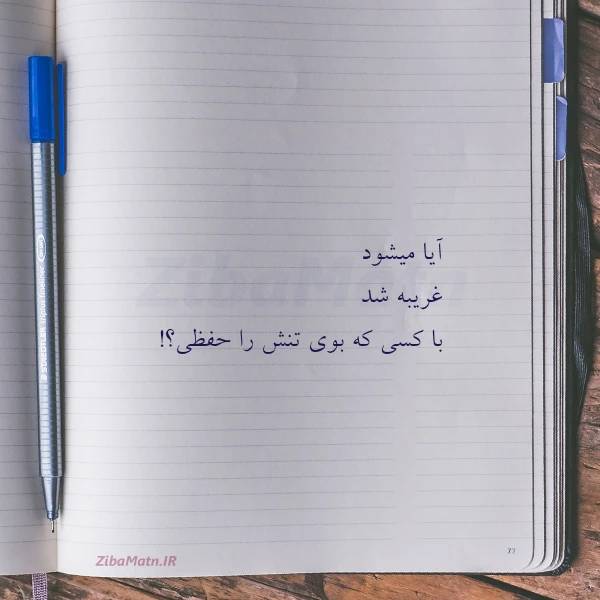 آیا میشود
غریبه شد
با کسی که بوی تنش را حفظی؟!
ZibaMatn
ZibaMatn.IR
77